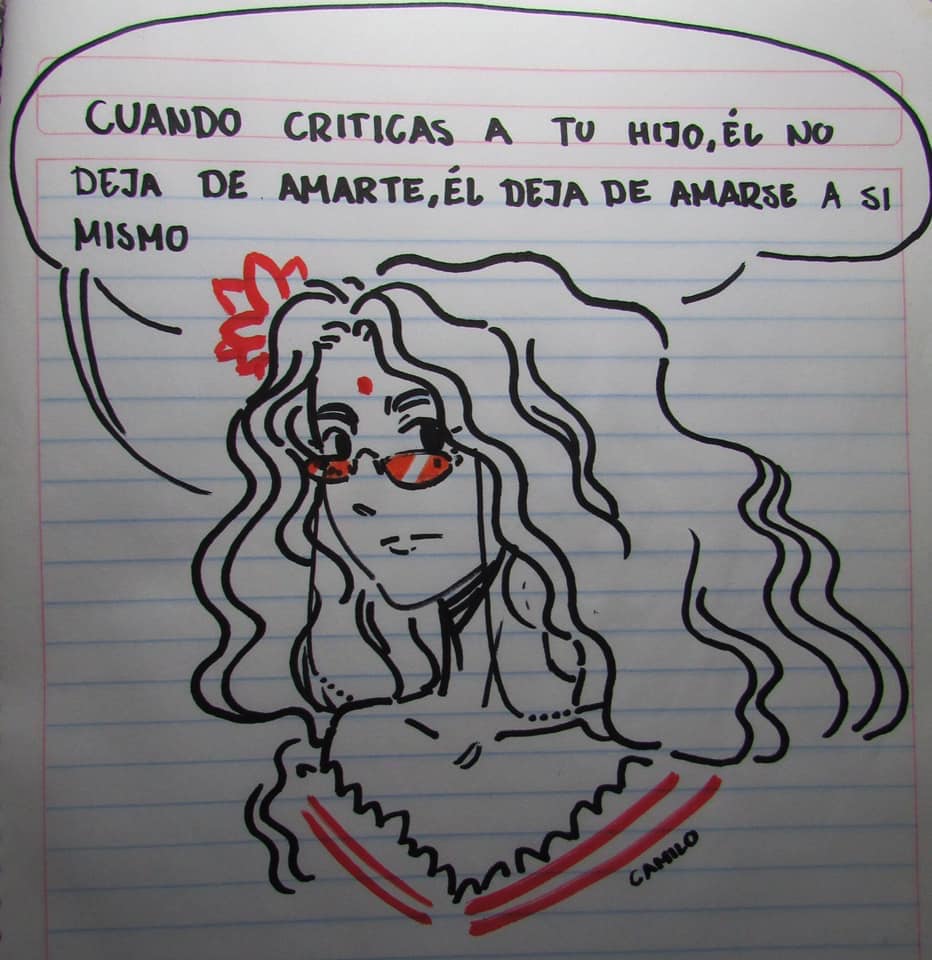 CUANDO CRITICAS A TU HIJO, ÉL NO
DEJA DE AMARTE, ÉL DEJA DE AMARSE A SI
MISMO
CAMILO